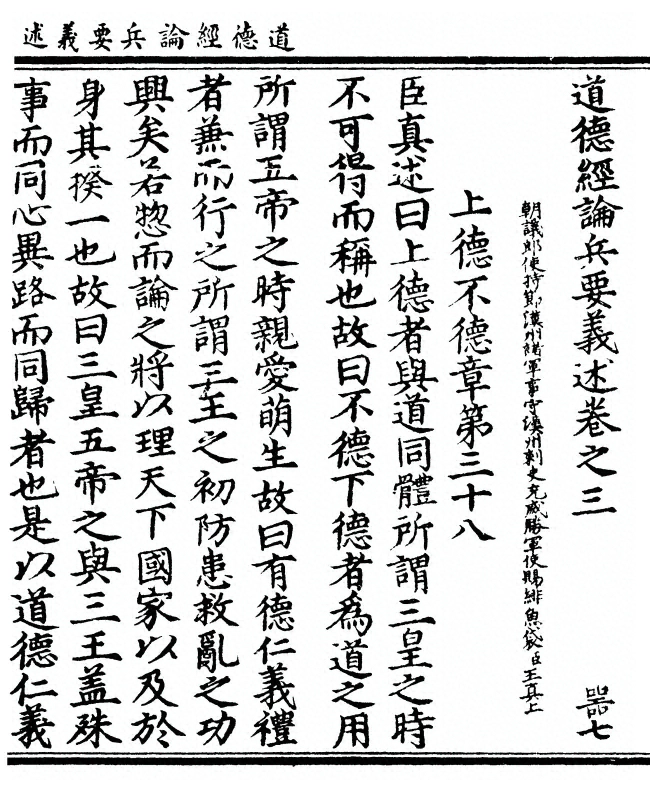 道德經論兵要義述
道德經論兵要義述卷之三 器七
朝議郎使持節漢州諸軍事守漢州刺史充威勝軍使賜緋魚袋臣王真上
上德不德章第三十八
臣真述曰上德者與道同體所謂三皇之時
不可得而稱也故曰不德下德者為道之用
所謂五帝之時親愛萌生故曰有德仁義禮
者兼而行之所謂三王之初防患救亂之功
興矣若惣而論之將以理天下國家以及於
身其揆一也故曰三皇五帝之與三王盖殊
事而同心異路而同歸者也是以道德仁義